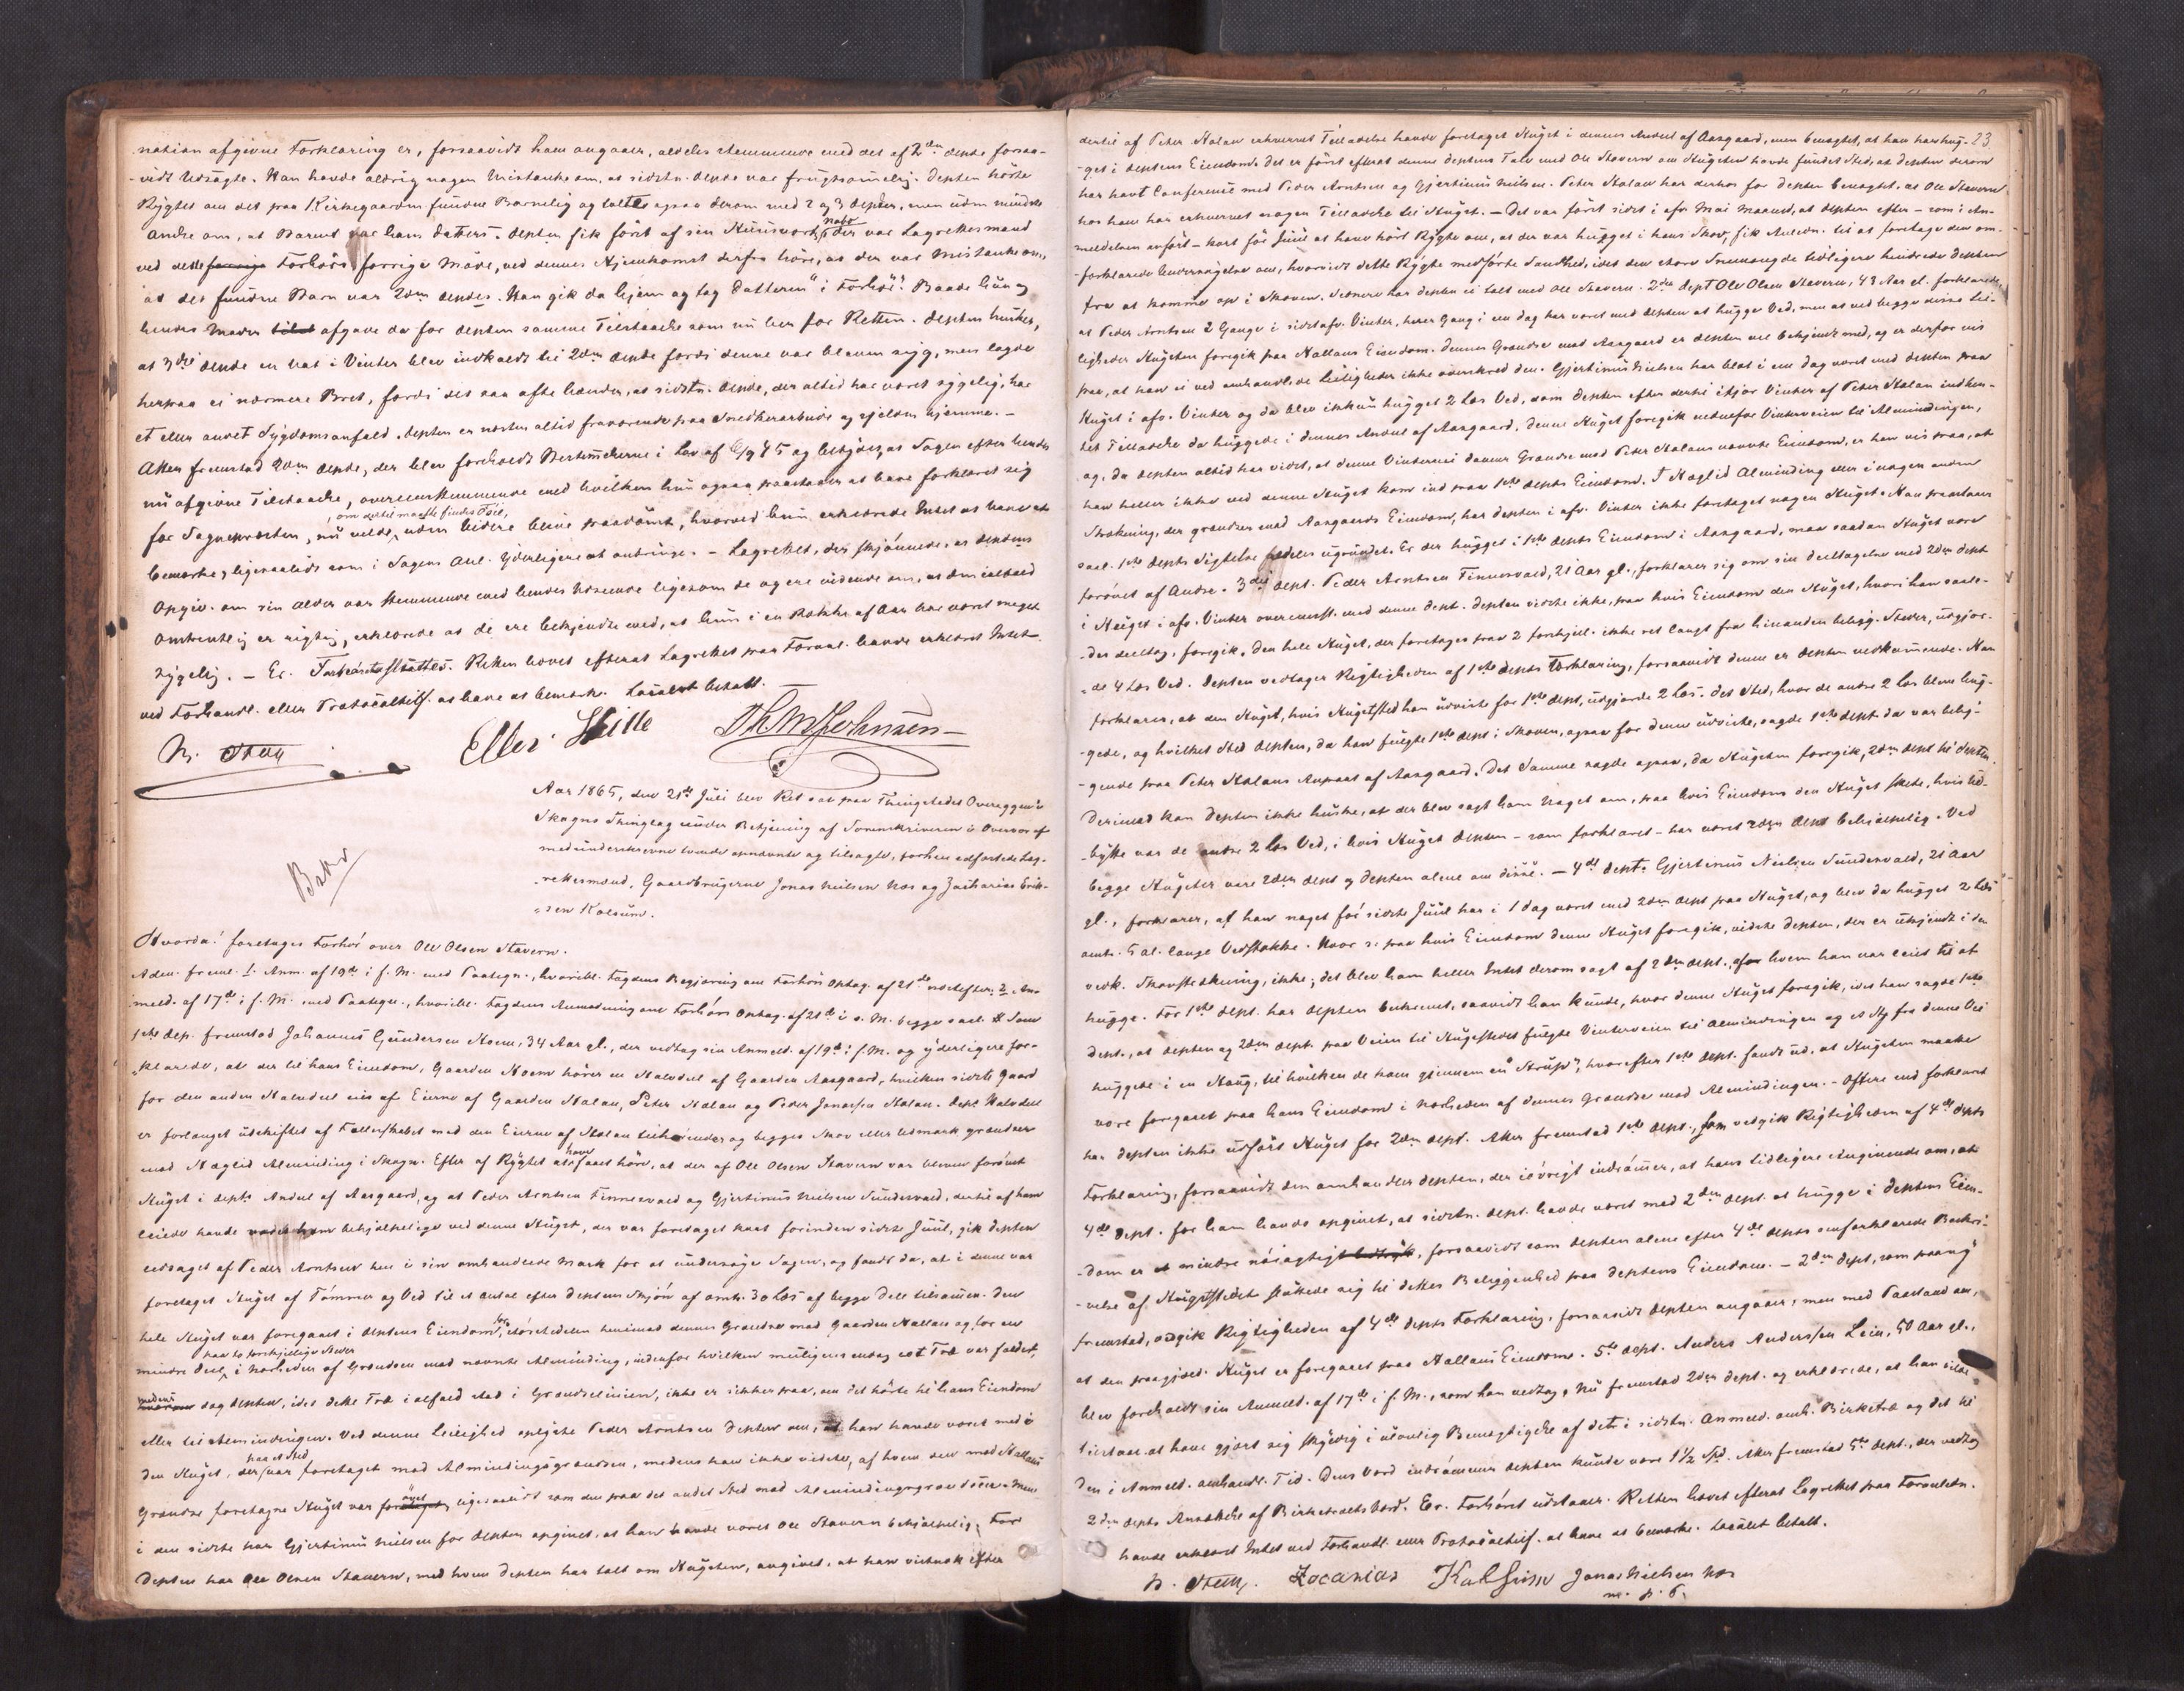 nation afgivne Forklaring er, forsaavidt ham angaaer, aldeles stemmende med det af 2den depte forsaa-
-vidt Udsagte. Han havde aldrig nogen Mistanke om, at sidstn. depte var frugtsommelig. Depten hørte
Rygtet om det paa Kirkegaarden fundne Barnelig og talte ogsaa derom med 2 og 3 depter, men uden mindste
Anelse om, at Barnet var hans Datters. Depten fik først af sin Nabo der var Lagrettesmand
ved dette Forhørs forrige Møde, ved dennes Hjemkomst derfra høre, at der var Mistanke om,
at det fundne Barn var 2den deptes. Han gik da hjem og tog Datteren "i Forhør". Baade hun og
hendes Moder afgave da for depten samme Tilstaaelse som nu her for Retten. Depten husker,
at 3die depte en Nat i Vinter blev indkaldt til 2den depte fordi denne var bleven syg, men lagde
herpaa ei nærmere Bret, fordi det saa ofte hænder, at sidstn. depte, der altid har været sygelig, har
et eller andet Sygdomsanfald. Depten er næsten altid fraværende paa Snedkerarbeide og sjelden hjemme. –
Atter fremstod 2den depte, der blev foreholdt Bestemmelserne i Lov af 6/9 45 og betydet, at Sagen efter hendes
nu afgivne Tilstaaelse, overensstemmende med hvilken hun ogsaa paastaaer at have forklaret sig
, om dertil maatte findes Føie,
for Sognepræsten, nu vilde uden Videre blive paadømt, hvorved hun erklærede Intet at have at
bemærke, ligesaalidt som i Sagens Anl. yderligere at anbringe. – Lagrettet, der skjønnede, at deptens
Opgiv. om sin Alder var stemmende med hendes Udseende ligesom de og ere vidende om, at den ialfald
omtrentlig er rigtig, erklærede at de ere bekjendte med, at hun i en Række af Aar har været meget
sygelig. – Ec. Forhøret sluttes. Retten hævet efterat Lagrettet paa Foranl. havde erklæret Intet
ved Forhandl. eller Protocoltilf. at have at bemærke. Localet betalt.
Eller Hille
Aar 1865, den 21de Juli blev Ret sat paa Thingstedet Overeggen i
Skogns Thinglag under Betjening af Sorenskriveren i Overvær af
medunderskrevne tvende opnævnte og tilsagte, forhen edfæstede Lag-
rettesmænd, Gaardbrugerne Jonas Nielsen Næs og Zacharias Erik-
-sen Kolsum.
Hvorda! foretages Forhør over Ole Olsen Stavern.
Adm. freml. 1. Anm. af 19de i f. M. med Paategn., hvoribl. Fogdens Begjæring om Forhørs Optag. af 21de næstefter; 2. An-
meld. af 17de i f. M. med Paategn., hvoribl. Fogdens Anmodning om Forhørs Optag. af 21de i s. M. Som
1ste dep. fremstod Johannes Gundersen Moem, 34 Aar gl., der vedtog sin Anmeld. af 19de i f. M. og yderligere for-
-klarede, at der til hans Eiendom, Gaarden Moem hører en Halvdeel af Gaarden Aasgaard, hvilken sidste Gaard
for den anden Halvdeel eies af Eierne af Gaarden Stalan, Peter Stalan og Peder Jonassen Stalan. Depts Halvdeel
er forlængst udskiftet af Fællesskabet med den Eierne af Stalan tilhørende og begges Skov eller Udmark grændser
mod Heglid Alminding i Skogn. Efter af Rygtet at have faaet høre, at der af Ole Olsen Stavern var bleven forøvet
Hugst i depts Andeel af Aasgaard, og at Peder Arntsen Finnesvald og Gjertinus Nielsen Sundersvald, dertil af ham
leiede havde været ham behjælpelige ved denne Hugst, der var foretaget kort forinden sidste Juul, gik depten
ledsaget af Peder Arntsen hen i sin omhandlede Mark for at undersøge Sagen, og fandt da, at i denne var
foretaget Hugst af Tømmer og Ved til et Antal efter deptens Skjøn af omtr. 30 Læs af begge Dele tilsammen. Den
hele Hugst var foregaaet i deptens Eiendom, Størstedelen henimod dennes Grændse mod Gaarden Hallan og for en
paa to forskjellige Steder
mindre Deel, i Nærheden af Grændsen mod nævnte Alminding, udenfor hvilken muligens endog eet Træ var fældet,
dog depten, idet dette Træ ialfald stod i Grændselinien, ikke er sikker paa, om det hørte til hans Eiendom
eller til Almindingen. Ved denne Leilighed oplyste Peder Arntsen depten om, at han havde været med i
paa et Sted
den Hugst, der var foretaget mod Almindingsgrændsen, medens han ikke vidste, af hvem den mod Hallans
Grændse foretagne Hugst var øvet, ligesaalidt som den paa det andet Sted mod Almindingsgrændsen. Men
i den sidste har Gjertinus Nielsen for depten opgivet, at han havde været Ole Stavern behjælpelig. For
depten har Ole Olsen Stavern, med hvem depten har talt om Hugsten, angivet, at han vistnok efter
23.
dertil af Peter Stalan erhvervet Tilladelse havde foretaget Hugst i dennes Andeel af Aasgaard, men benægtet, at han har hug-
-get i deptens Eiendom. Det er først efterat denne deptens Tale med Ole Stavern om Hugsten havde fundet Sted, at depten derom
har havt Conferents med Peder Arntsen og Gjertinus Nielsen. Peter Stalan har derhos for depten benægtet, at Ole Stavern
hos ham har erhvervet nogen Tilladelse til Hugst. – Det var først sidst i afv. Mai Maaned, at depten efter – som i An-
meldelsen anført – kort før Juul at have hørt Rygte om, at der var hugget i hans Skov, fik Anledn. til at foretage den om-
-forklarede Undersøgelse om, hvorvidt dette Rygte medførte Sandhed, idet den store Sneemængde tidligere hindrede depten
fra at komme op i Skoven. Senere har depten ei talt med Ole Stavern. 2den dept Ole Olsen Stavern, 43 Aar gl. forklarede,
at Peder Arntsen 2 Gange i sidstafv. Vinter, hver Gang i en Dag har været med depten at hugge Ved, men at ved begge disse Lei-
ligheder Hugsten foregik paa Hallans Eiendom. Dennes Grændse mod Aasgaard er depten vel bekjendt med, og er derfor vis
paa, at han ei ved omhandlede Leiligheder ikke overskred den. Gjertinus Nielsen har blot i en Dag været med depten paa
Hugst i afv. Vinter og da blev ikkun hugget 2 Læs Ved, som depten efter dertil ifjor Vinter af Peter Stalan indhen-
tet Tilladelse da huggede i dennes Andeel af Aasgaard. Denne Hugst foregik nedenfor Vinterveien til Almindingen,
og, da depten altid har vidst, at denne Vintervei danner Grændse mod Peter Stalans nævnte Eiendom, er han vis paa, at
han heller ikke ved denne Hugst kom ind paa 1ste depts Eiendom. I Heglid Alminding eller i nogen anden
Strækning, der grændser mod Aasgaards Eiendom, har depten i afv. Vinter ikke foretaget nogen Hugst. Han paastaaer
saal. 1ste depts Sigtelse aldeles ugrundet. Er der hugget i 1ste depts Eiendom i Aasgaard, maa saadan Hugst være
forøvet af Andre. 3die dept. Peder Arntsen Finnesvald, 21 Aar gl., forklarer sig om sin Deeltagelse med 2den dept
i Hugst i afv. Vinter overensst. med denne dept. Depten vidste ikke, paa hvis Eiendom den Hugst, hvori han saale-
-des deeltog, foregik. Den hele Hugst, der foretoges paa 2 forskjell. ikke ret langt fra hinanden beligg. Steder, udgjor-
-de 4 Læs Ved. Depten vedtager Rigtigheden af 1ste depts Forklaring, forsaavidt denne er depten vedkommende. Han
forklarer, at den Hugst, hvis Hugststed han udviste for 1ste dept, udgjorde 2 Læs. Det Sted, hvor de andre 2 Læs bleve hug-
-gede, og hvilket Sted depten, da han fulgte 1ste dept i Skoven, ogsaa for denne udviste, sagde 1ste dept da var belig-
-gende paa Peter Stalans Anpart af Aasgaard. Det Samme sagde ogsaa, da Hugsten foregik, 2den dept til depten.
Derimod kan depten ikke huske, at der blev sagt ham Noget om, paa hvis Eiendom den Hugst skete, hvis Ud-
-bytte var de andre 2 Læs Ved, i hvis Hugst depten – som forklaret – har været 2den dept behjælpelig. Ved
begge Hugster vare 2den dept og depten alene om disse. – 4de dept. Gjertinus Nielsen Sundersvald, 21 Aar
gl., forklarer, at han noget før sidste Juul har i 1 Dag været med 2den dept paa Hugst, og blev da hugget 2 Læs
omtr. 5 al. lange Vedstokke. Hvor ɔ: paa hvis Eiendom denne Hugst foregik, vidste depten, der er ukjendt i den
vedk. Skovstrækning, ikke; det blev ham heller Intet derom sagt af 2den dept., for hvem han var leiet til at
hugge. For 1ste dept. har depten beskrevet, saavidt han kunde, hvor denne Hugst foregik, idet han sagde 1ste
dept., at depten og 2den dept. paa Veien til Hugststedet fulgte Vinterveien til Almindingen og et Stk fra denne Vei
huggede i en Haug, til hvilken de kom gjennem en "Strupe", hvorefter 1ste dept. fandt ud, at Hugsten maatte
være foregaaet paa hans Eiendom i Nærheden af dennes Grændse mod Almindingen. – Oftere end forklaret
har depten ikke udført Hugst for 2den dept. Atter fremstod 1ste dept., som vedgik Rigtigheden af 4de depts
Forklaring, forsaavidt den omhandler depten, der iøvrigt indrømmer, at hans tidligere Angivende om, at
4de dept. for ham havde opgivet, at sidstn. dept. havde været med 2den dept. at hugge i deptens Eien-
-dom er mindre nøiagtigt, forsaavidt som depten alene efter 4de depts omforklarede Beskri-
-velse af Hugststedet sluttede sig til dettes Beliggenhed paa deptens Eiendom. – 2den dept, som paany
fremstod, vedgik Rigtigheden af 4de depts Forklaring, forsaavidt depten angaaer, men med Paastand om,
at den paagjæld. Hugst er foregaaet paa Hallans Eiendom. 5te dept. Anders Anderssen Lein, 50 Aar gl.,
blev foreholdt sin Anmeld. af 17de i f. M., som han vedtog. Nu fremstod 2den dept. og erklærede, at han vilde
tilstaae at have gjort sig skyldig i ulovlig Bemægtigelse af det i sidstn. Anmeld. omh. Birketræ og det til
den i Anmeld. omhandl. Tid. Dens Værd indrømmer depten kunde være 1½ Spd. Atter fremstod 5te dept., der vedtog
2den depts Ansættelse af Birketræets Værd. Ec. Forhøret udstaaer. Retten hævet efterat Lagrettet paa Foranledn.
havde erklæret Intet ved Forhandl. eller Protocoltilf. at have at bemærke. Localet betalt.
Zocarias Jonas Nielsen Næs
m. p. P.